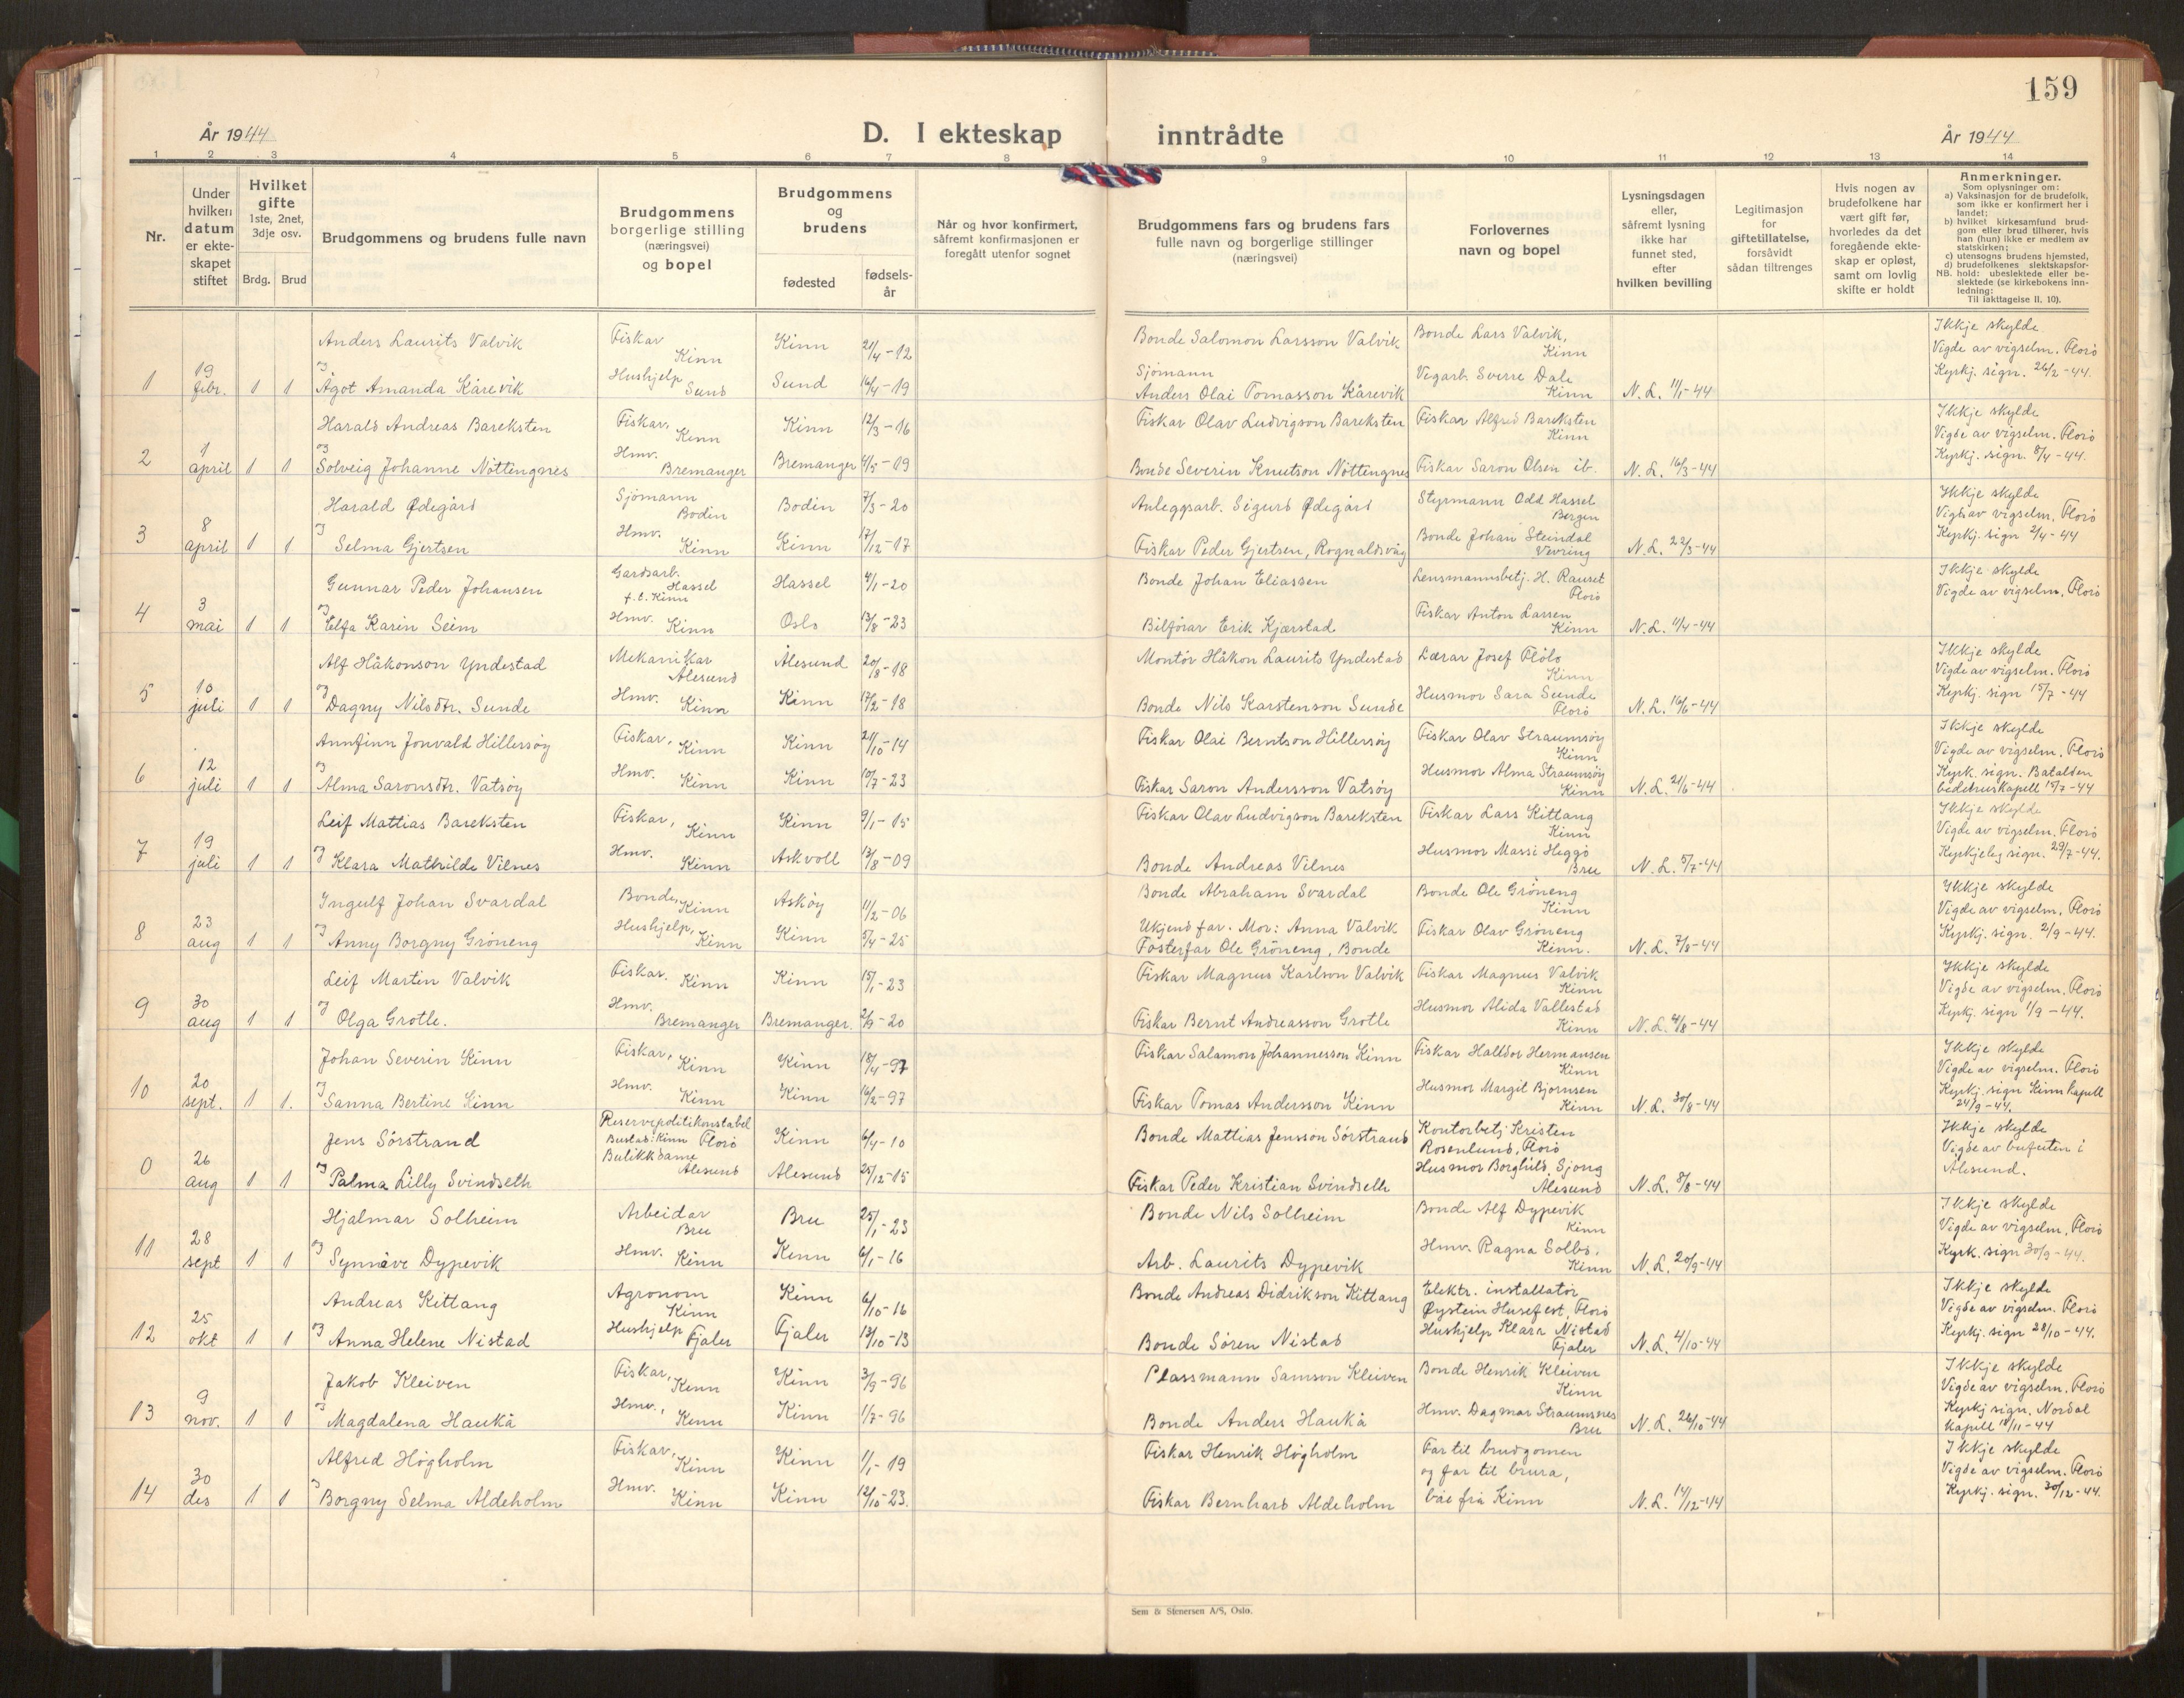 159
År 1944
D. I ekteskap inntrådte
År 1944
1 2 3 4 5 6 7 8 9 10 11 12 13 14
Nr.
Under hvilken datum er ekte-skapet stiftet
Hvilket gifte 1ste, 2net, 3dje osv.
Brdg. Brud
Brudgommens og brudens fulle navn
Brudgommens borgerlige stilling (næringsvei) og bopel
Brudgommens og brudens
fødested
fødsels-år
Når og hvor konfirmert, såfremt konfirmasjonen er foregått utenfor sognet
Brudgommens fars og brudens fars fulle navn og borgerlige stillinger (næringsvei)
Forlovernes navn og bopel
Lysningsdagen eller, såfremt lysning ikke har funnet sted, efter hvilken bevilling
Legitimasjon for giftetillatelse, forsåvidt sådan tiltrenges
Hvis nogen av brudefolkene har vært gift før, hvorledes da det foregående ekte-skap er opløst, samt om lovlig skifte er holdt
Anmerkninger.
Som oplysninger om:
a) Vaksinasjon for de brudefolk, som ikke er konfirmert her i landet;
b) hvilket kirkesamfund brud-gom eller brud tilhører, hvis han (hun) ikke er medlem av statskirken;
c) utensogns brudens hjemsted,
d) brudefolkenes slektskapsfor-hold: ubeslektede eller be-slektede (se kirkebokens inn-ledning:
NB.
Til iakttagelse II. 10).
Anders Laurits Valvik Fiskar Kinn Kinn 21/4-12 Bonde Salomon Larsson Valvik Bonde Lars Valvik, Kinn Ikkje skylde
1 19 febr. 1 1 og Ågot Amanda Kårevik Hushjelp Sund Sund 16/4-19 Sjömann Anders Olai Tomasson Kårevik Vegarb. Sverre Dale Kinn N.L. 11/1-44 Vigde av vigselm. Florö Kyrkj. sign. 26/2-44.
Harald Andreas Bareksten Fiskar, Kinn Kinn 12/3-16 Fiskar Olav Ludvigson Bareksten Fiskar Alfred Bareksten Kinn Ikkje skylde
2 1 april 1 1 og Solveig Johanne Nöttingnes Hmv. Bremanger Bremanger 4/5-19 Bonde Severin Knutson Nöttingnes Fiskar Saron Olsen ib. N.L. 16/3-44 Vigde av vigselm. Florö Kyrkj. sign. 8/4-44.
Harald Ødegård Sjömann Bodin Bodin 7/3-20 Anleggsarb. Sigurd Ødegård Styrmann Odd Hassel Bergen Ikkje skylde
3 8 april 1 1 og Selma Gjertsen Hmv. Kinn Kinn 17/12-17 Fiskar Peder Gjertsen, Rognaldsvåg Bonde Johan Steindal Vevring N.L. 22/3-44 Vigde av vigselm. Florö Kyrkj. sign 2/4-44
Gunnar Peder Johansen Gardsarb. Hassel f.t. Kinn Hassel 4/1-20 Bonde Johan Eliassen Lensmannsbetj. H. Rauset Florö Ikkje skylde
4 3 mai 1 1 og Elfa Karin Seim Hmv. Kinn Oslo 13/8-23 Bilförar Erik Kjærstad Fiskar Anton Larsen Kinn N.L. 11/4-44 Vigde av vigselm. Florö
Alf Håkonson Yndestad Mekanikar Ålesund Ålesund 20/8-18 Montör Håkon Laurits Yndestad Lærar Josef Flölo Kinn Ikkje skylde
5 10 juli 1 1 og Dagny Nilsdtr. Sunde Hmv. Kinn Kinn 17/2-18 Bonde Nils Karstenson Sunde Husmor Sara Sunde Florö N.L. 16/6-44 Vigde av vigselm. Florö Kyrkj. sign 15/7-44
Annfinn Jonvald Hillersöy Fiskar, Kinn Kinn 21/10-14 Fiskar Olai Berntson Hillersöy Fiskar Olav Straumsöy Kinn Ikkje skylde
6 12 juli 1 1 og Alma Saronsdtr. Vatsöy Hmv. Kinn Kinn 10/7-23 Fiskar Saron Andersson Vatsöy Husmor Alma Straumsöy Kinn N.L. 21/6-44 Vigde av vigselm. Florö Kyrk. sign. Batalden bedehuskapell 15/7-44
Leif Mattias Bareksten Fiskar, Kinn Kinn 9/1-15 Fiskar Olav Ludvigson Bareksten Fiskar Lars Kittang Kinn Ikkje skylde
7 19 juli 1 1 og Klara Mathilde Vilnes Hmv. Kinn Askvoll 13/8-09 Bonde Andreas Vilnes Husmor Massi Heggö Bru N.L. 5/7-44 Vigde av vigselm. Florö Kyrkjeleg sign. 29/7-44.
Ingulf Johan Svardal Bonde, Kinn Asköy 11/2-06 Bonde Abraham Svardal Bonde Ole Gröneng Kinn Ikkje skylde
8 23 aug 1 1 og Anny Borgny Gröneng Hushjelp, Kinn Kinn 5/4-25 Ukjend far. Mor: Anna Valvik Fosterfar Ole Gröneng, Bonde Fiskar Olav Gröneng Kinn. N.L. 7/8-44 Vigde av vigselm. Florö Kyrkj. sign. 2/9-44.
Leif Martin Valvik Fiskar. Kinn Kinn 15/1-23 Fiskar Magnus Karlson Valvik Fiskar Magnus Valvik Kinn Ikkje skylde
9 30 aug 1 1 og Olga Grotle. Hmv. Bremanger Bremanger. 2/9-20 Fiskar Bernt Andreasson Grotle Husmor Alida Vallestad Kinn N.L. 4/8-44 Vigde av vigselm. Florö Kyrkj. sign 1/9-44.
Johan Severin Kinn Fiskar, Kinn Kinn 18/4-97 Fiskar Salamon Johannesson Kinn Fiskar Halldor Hermansen Kinn Ikkje skylde
10 20 sept. 1 1. og Sanna Bertine Kinn Hmv. Kinn Kinn 16/2-97 Fiskar Tomas Andersson Kinn Husmor Margit Bjornsen Kinn N.L. 30/8-44 Vigde av vigselm. Florö Kyrkj. sign Kinn kapell 24/9-44.
Jens Sörstrand Reservepolitikonstabel Bustad: Kinn Florö Kinn 6/4-10 Bonde Mattias Jensson Sörstrand Kontorbetj. Kristen Rosenlund, Florö Ikkje skylde
0 26 aug 1 1 og Palma Lilly Svindseth Butikkdame Ålesund Ålesund 25/12-15 Fiskar Peder Kristian Svindseth Husmor Borghild Sjong Ålesund N.L. 8/8-44 Vigde av byfuten i Ålesund.
Hjalmar Solheim Arbeidar Bru Bru 25/1-23 Bonde Nils Solheim Bonde Alf Dypevik Kinn Ikkje skylde
11 28 sept 1 1 og Synnöve Dypevik Hmv. Kinn Kinn 6/1-16 Arb. Laurits Dypevik Hmv. Ragna Solbö. Kinn N.L. 20/9-44 Vigde av vigselm. Florö Kyrk. sign 30/9-44.
Andreas Kittang Agronom Kinn Kinn 6/10-16 Bonde Andreas Didrikson Kittang Elektr. installatör Øystein Husefest, Florö Ikkje skylde
12 25 okt 1 1 og Anna Helene Nistad Hushjelp Fjaler Fjaler 13/10-13 Bonde Sören Nistad Hushjelp Klara Nistad Fjaler N.L. 4/10-44 Vigde av vigselm. Florö Kyrkj. sign 28/10-44.
Jakob Kleiven Fiskar, Kinn Kinn 3/9-96 Plassmann Samson Kleiven Bonde Henrik Kleiven Kinn Ikkje skylde
13 9 nov. 1 1 og Magdalena Haukå Hmv., Kinn Kinn 1/7-96 Bonde Anders Haukå Hmv. Dagmar Straumsnes Bru N.L. 26/10-44 Vigde av vigselm. Florö Kyrkj sign. Nordal kapell 18/11-44
Alfred Högholm Fiskar, Kinn Kinn 1/1-19 Fiskar Henrik Högholm Far til brudgomen og far til brura, Ikkje skylde
14 30 des 1 1 og Borgny Selma Aldeholm Hmv. Kinn Kinn 12/10-23. Fiskar Bernhard Aldeholm båe frå Kinn N.L. 14/12-44 Vigde av vigselm. Florö Kyrkj. sign. 30/12-44.
Sem & Stenersen A/S, Oslo.